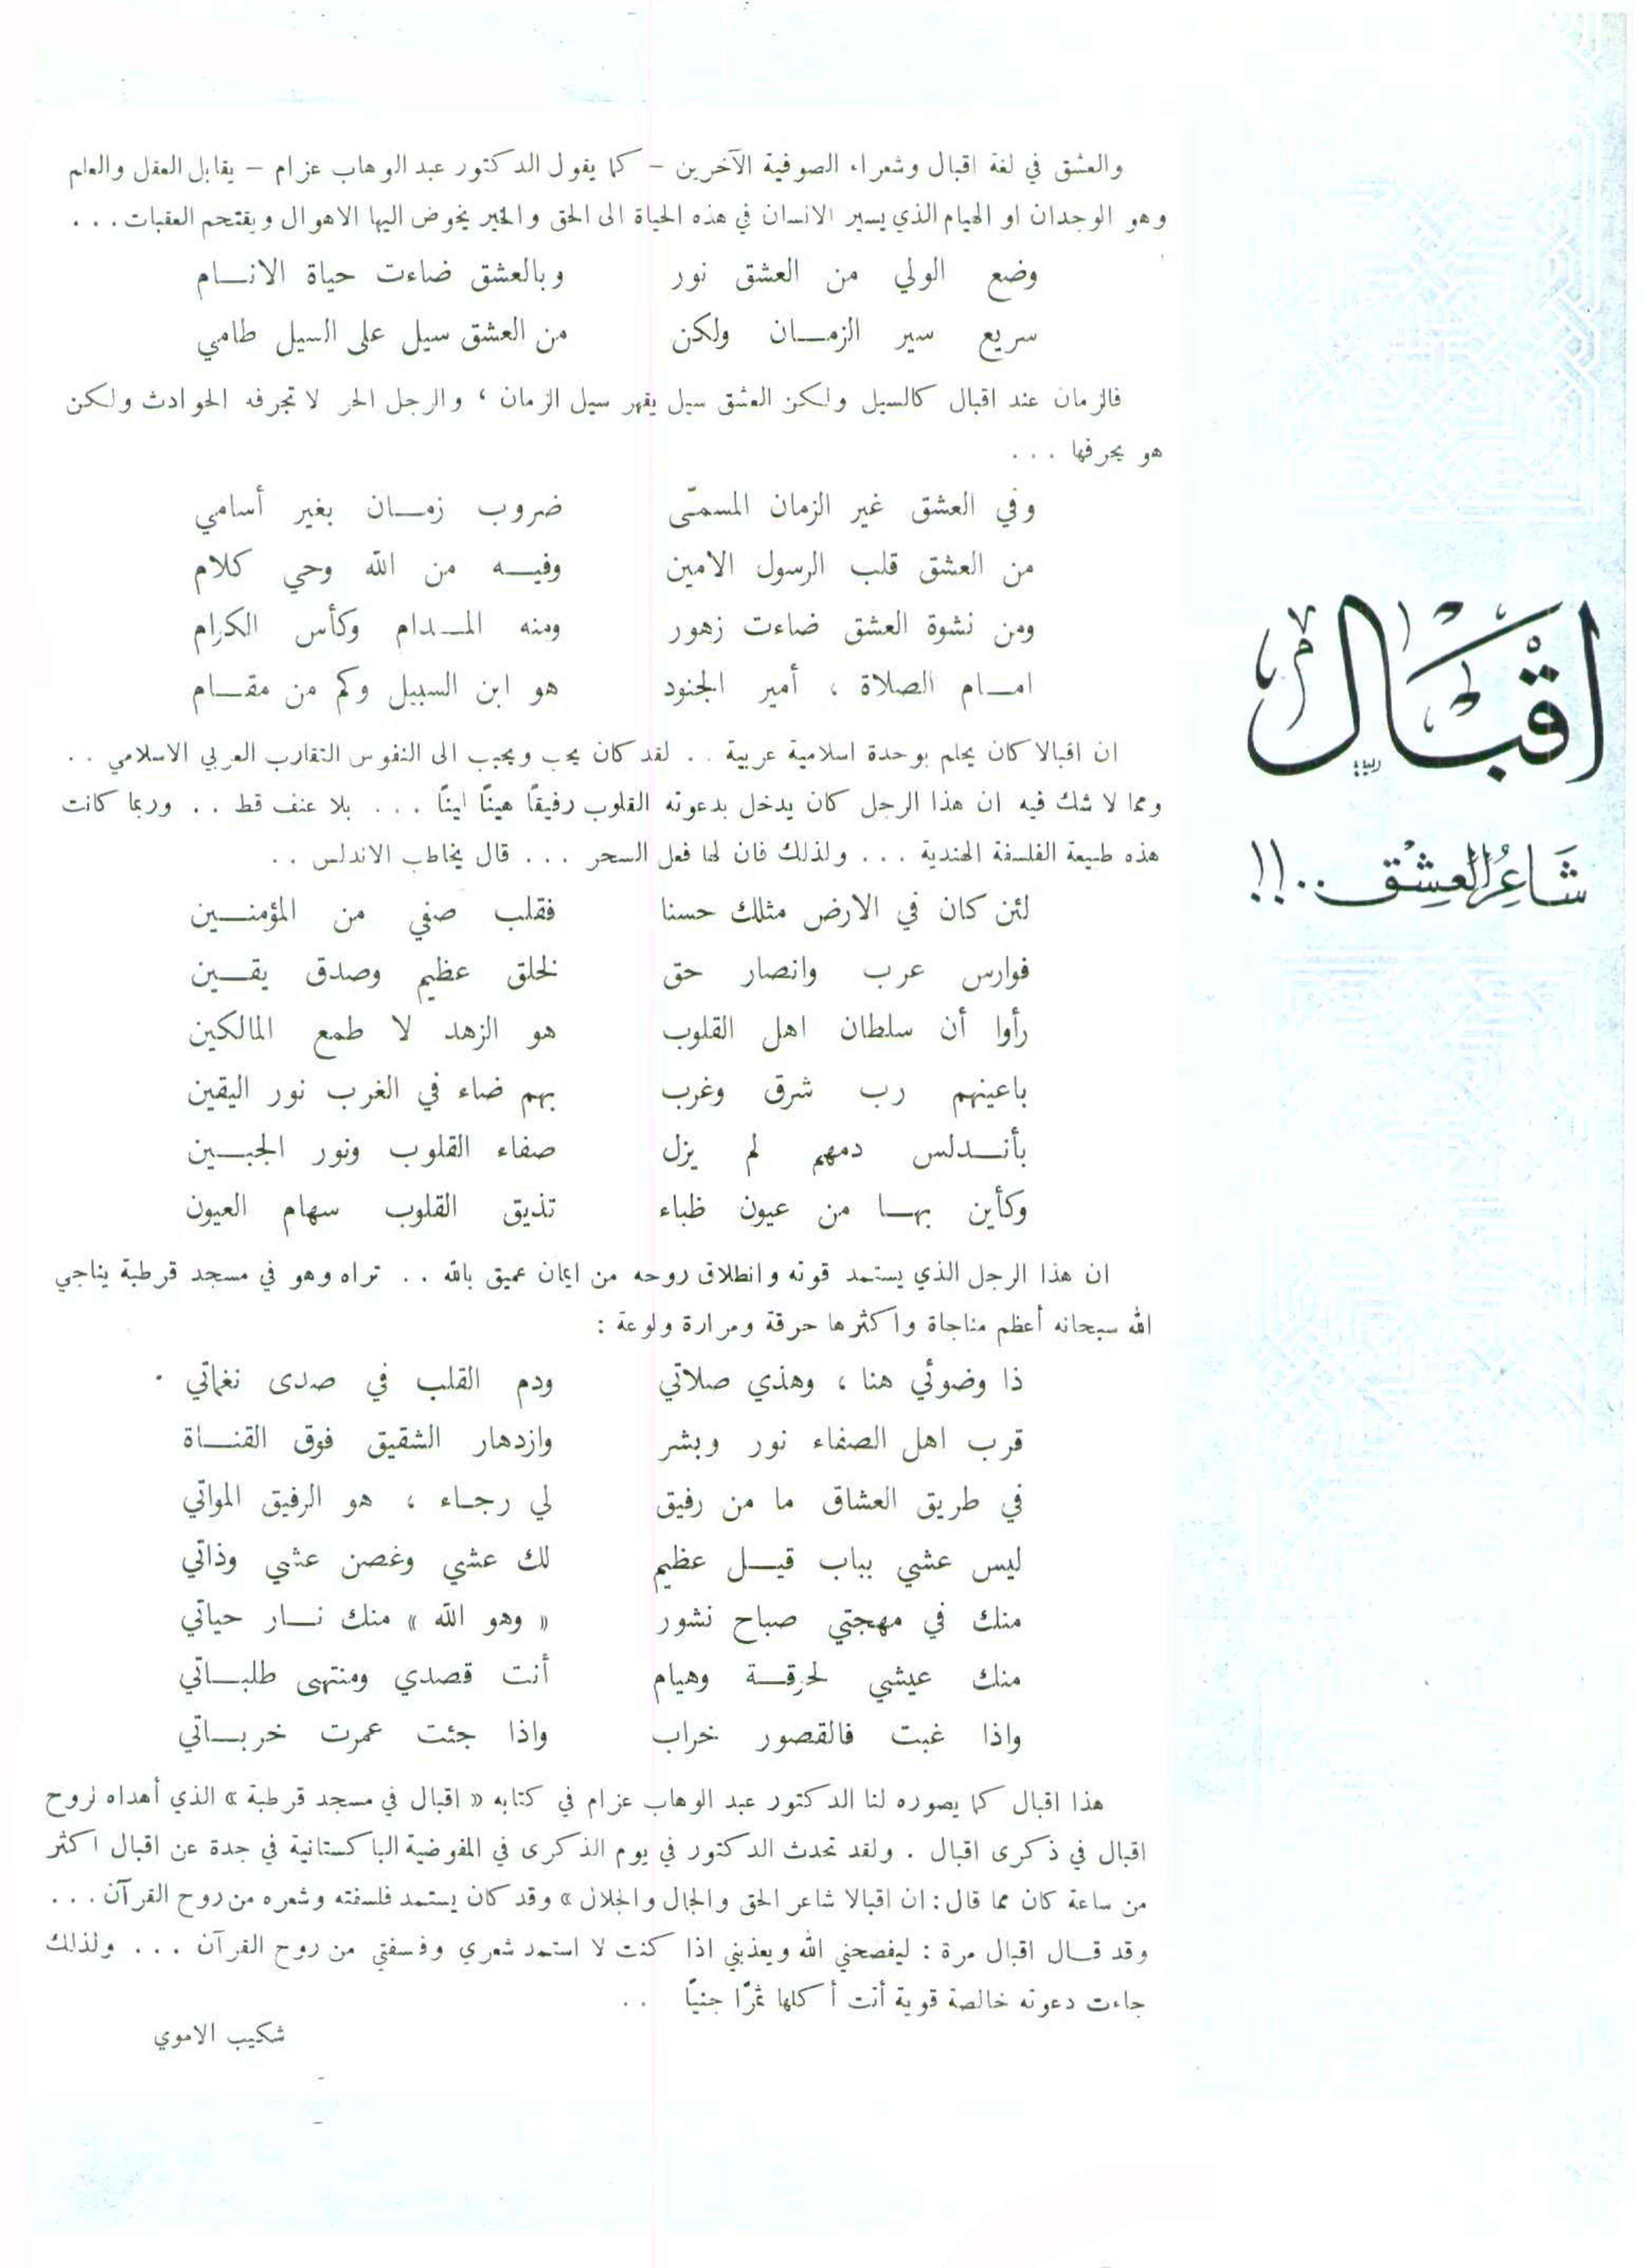 اقبال
شاعر العشق ..!!
والعشق في لغة اقبال وشعراء الصوفية الآخرين – كما يقول الدكتور عبد الوهاب عزام – يقابل العقل والعلم
وهو الوجدان او الهيام الذي يسير الانسان في هذه الحياة الى الحق والخير يخوض اليها الاهوال ويقتحم العقبات . . .
وضع الولي من العشق نور وبالعشق ضاءت حياة الانـام
سريع سير الزمـان ولكن من العشق سيل على السيل طامي
فالزمان عند اقبال كالسيل ولكن العشق سيل يقهر سيل الزمان ، والرجل الحر لا تجرفه الحوادث ولكن
هو يجرفها . . .
وفي العشق غير الزمان المسمّى ضروب زمـان بغير أسامي
من العشق قلب الرسول الامين وفيـه من الله وحي كلام
ومن نشوة العشق ضاءت زهور ومنه المـدام وكأس الكرام
امـام الصلاة ، أمير الجنود هو ابن السبيل وكم من مقـام
ان اقبالا كان يحلم بوحدة اسلامية عربية . . لقد كان يحب ويحبب الى النفوس التقارب العربي الاسلامي . .
ومما لا شك فيه ان هذا الرجل كان يدخل بدعوته القلوب رفيقًا هينًا لينًا . . . بلا عنف قط . . وربما كانت
هذه طبيعة الفلسفة الهندية . . . ولذلك فان لها فعل السحر . . . قال يخاطب الاندلس . .
لئن كان في الارض مثلك حسنا فقلب صفي من المؤمنـين
فوارس عرب وانصار حق لخلق عظيم وصدق يقـين
رأوا أن سلطان اهل القلوب هو الزهد لا طمع المالكين
باعينهم رب شرق وغرب بهم ضاء في الغرب نور اليقين
بأنـدلس دمهم لم يزل صفاء القلوب ونور الجبـين
وكأين بهـا من عيون ظباء تذيق القلوب سهام العيون
ان هذا الرجل الذي يستمد قوته وانطلاق روحه من ايمان عميق بالله . . تراه وهو في مسجد قرطبة يناجي
الله سبحانه أعظم مناجاة واكثرها حرقة ومرارة ولوعة :
ذا وضوئي هنا ، وهذي صلاتي ودم القلب في صدى نغماتي .
قرب اهل الصفاء نور وبشر وازدهار الشقيق فوق القنـاة
في طريق العشاق ما من رفيق لي رجـاء ، هو الرفيق المواتي
ليس عشي بباب قيـل عظيم لك عشي وغصن عشي وذاتي
منك في مهجتي صباح نشور « وهو الله » منك نـار حياتي
منك عيشي لحرقـة وهيام أنت قصدي ومنتهى طلبـاتي
واذا غبت فالقصور خراب واذا جئت عمرت خربـاتي
هذا اقبال كما يصوره لنا الدكتور عبد الوهاب عزام في كتابه « اقبال في مسجد قرطبة » الذي أهداه لروح
اقبال في ذكرى اقبال . ولقد تحدث الدكتور في يوم الذكرى في المفوضية الباكستانية في جدة عن اقبال اكثر
من ساعة كان مما قال : ان اقبالا شاعر الحق والجمال والجلال » وقد كان يستمد فلسفته وشعره من روح القرآن . . .
وقد قـال اقبال مرة : ليفضحني الله ويعذبني اذا كنت لا استمد شعري وفسفتي من روح القرآن . . . ولذلك
جاءت دعوته خالصة قوية أتت أكلها ثمرًا جنيًا . .
شكيب الاموي